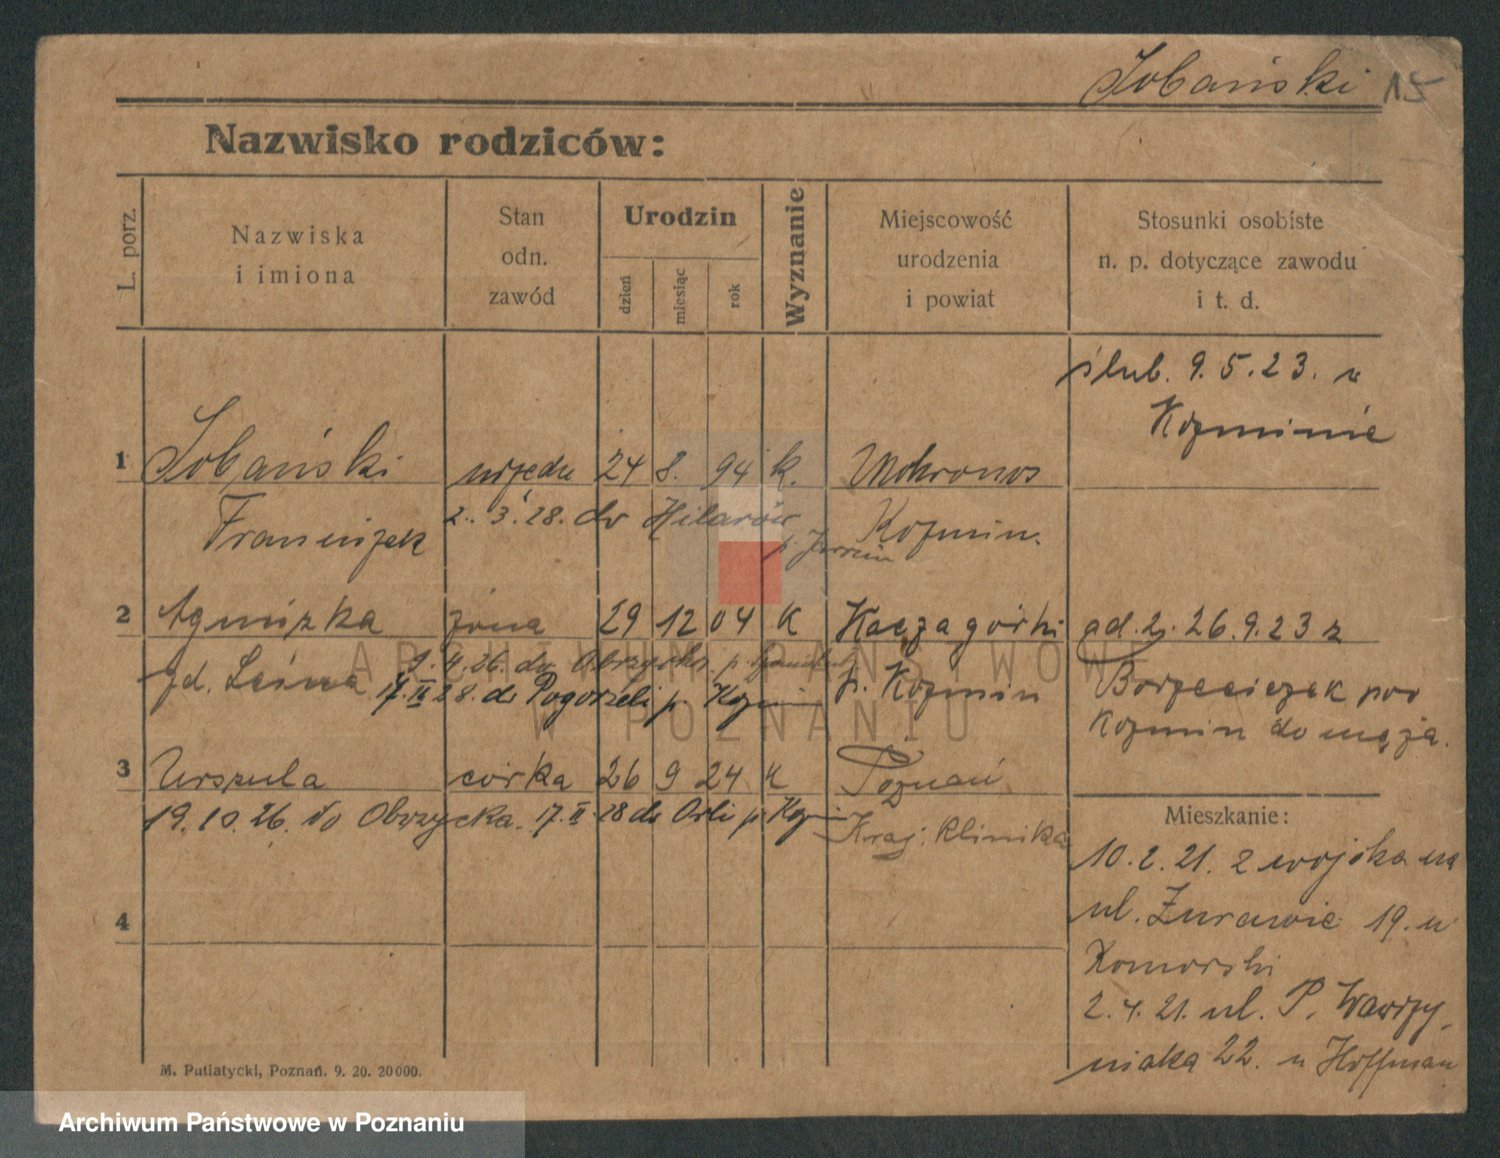 Sobański 15
Nazwisko rodziców:
L. porz.
Nazwiska
i imiona
Stan
odn.
zawód
Urodzin
dzień
miesiąc
rok
Wyznanie
Miejscowość
urodzenia
i powiat
Stosunki osobiste
n. p. dotyczące zawodu
i t. d.
ślub. 9.5.23. w
Kozminie
1 Sobański 24 8. 94 k. Mokronos
Franciszek 2. 3. 28. do Hilarów Kozmin.
2 Agnieszka żona 29 12 04 K Kaczagórki od. 2. 26.9.23 z
9.4.26. do Obrzycka. p. Kozmin
17.II 28. do Pogorzeli p. Kozmin Borzęciczek pow
Kozmin do męża.
3 Urszula córka 26 9 24 K Poznań
19.10.26. do Obrzycka. 17.II.28 do Orli p. Kozmin Kraj. klinika
Mieszkanie:
10.2.21. z wojska na
ul. Żurawie 19. u
Komorski
4
2.4.21. ul. P. Wawrzy-
niaka 22. u Hoffman
M. Putiatycki, Poznań. 9. 20. 20000.
ARCHIWUM PAŃSTWOWE
W POZNANIU
Archiwum Państwowe w Poznaniu